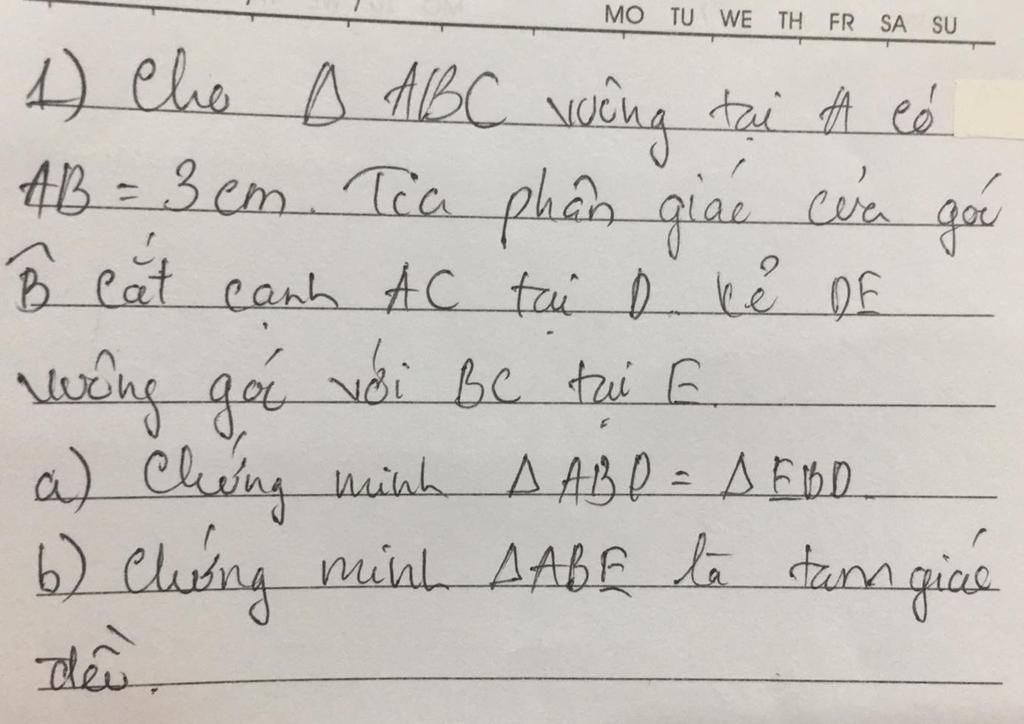 MO TU WE TH FR SA SU
1) Cho Δ ABC vuông tại A có
AB = 3 cm. Tia phân giác của góc
B̂ cắt cạnh AC tại D. Kẻ DE
vuông góc với BC tại E.
a) Chứng minh Δ ABD = Δ EBD.
b) Chứng minh ΔABE là tam giác
đều.